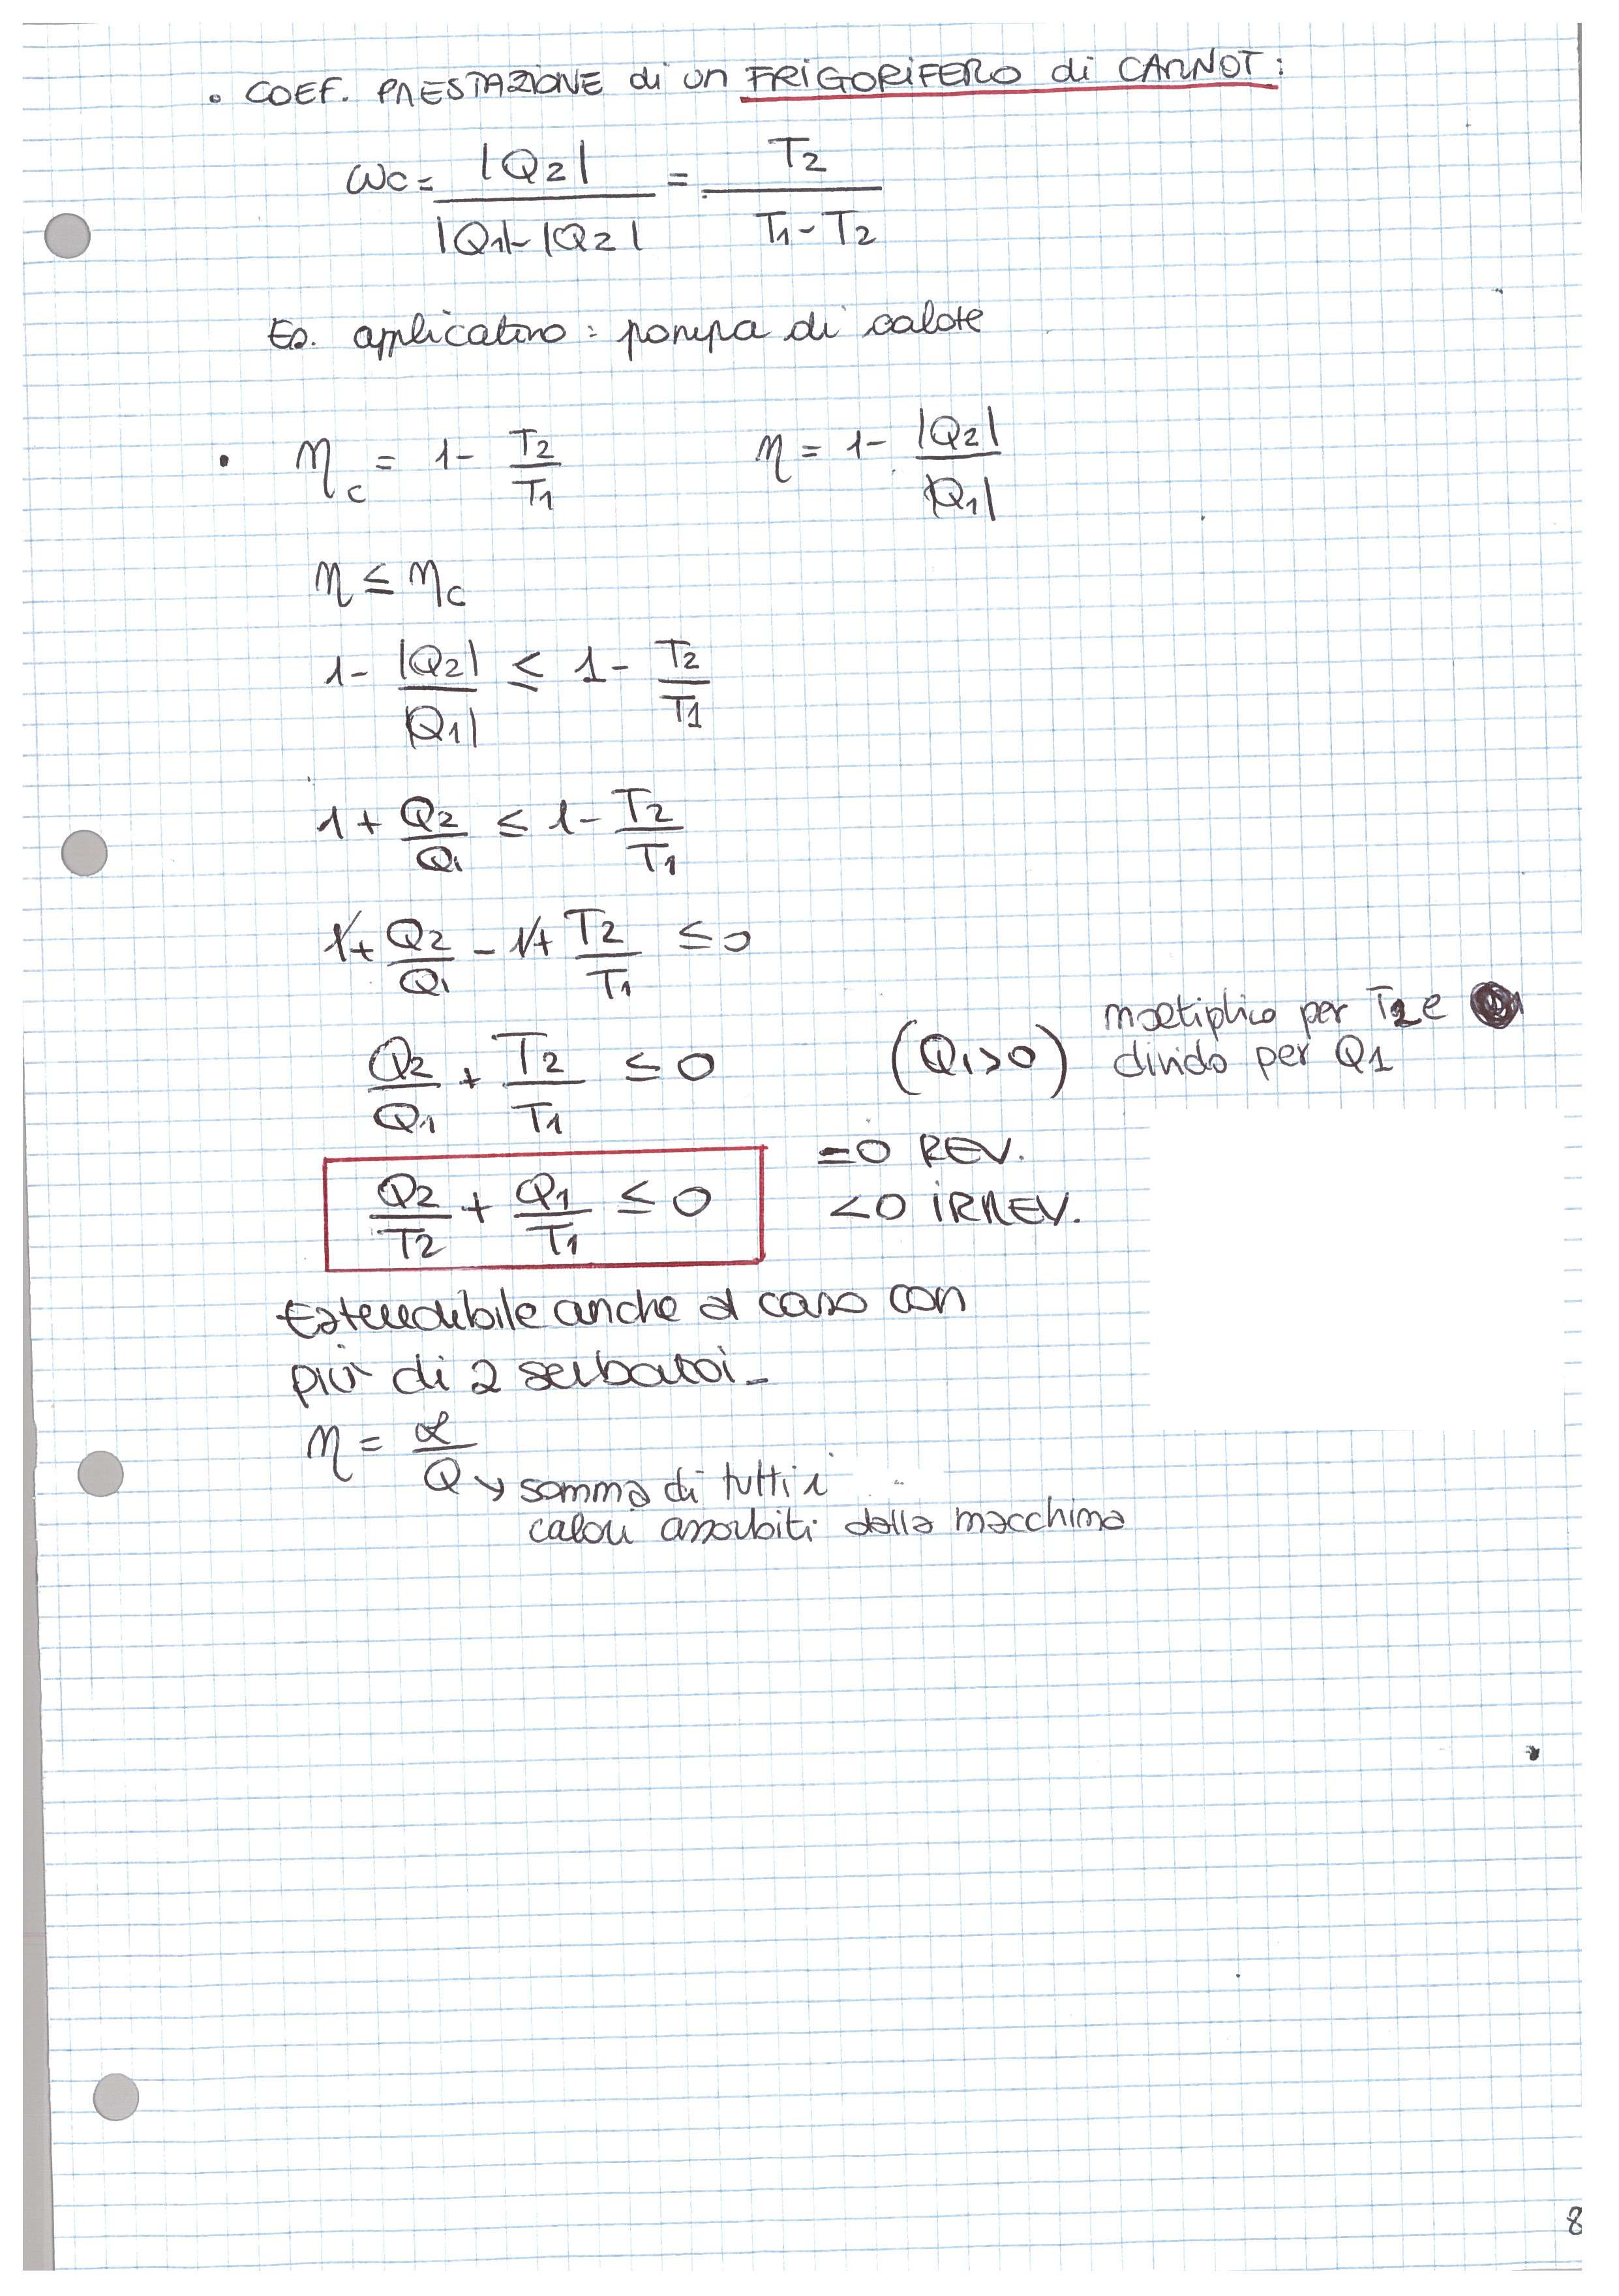 • COEF. PRESTAZIONE di un FRIGORIFERO di CARNOT:
ωc = |Q2| / (|Q1| - |Q2|) = T2 / (T1 - T2)
Es. applicativo: pompa di calore
• ηc = 1 - T2/T1    η = 1 - |Q2|/|Q1|
η ≤ ηc
1 - |Q2|/|Q1| ≤ 1 - T2/T1
1 + Q2/Q1 ≤ 1 - T2/T1
1 + Q2/Q1 - 1 + T2/T1 ≤ 0
Q2/Q1 + T2/T1 ≤ 0    (Q1>0)    moltiplico per T2 e
divido per Q1
Q2/T2 + Q1/T1 ≤ 0    =0 REV.
<0 IRREV.
Estendibile anche al caso con
più di 2 serbatoi.
η = L/Q → somma di tutti i
calori assorbiti dalla macchina
8